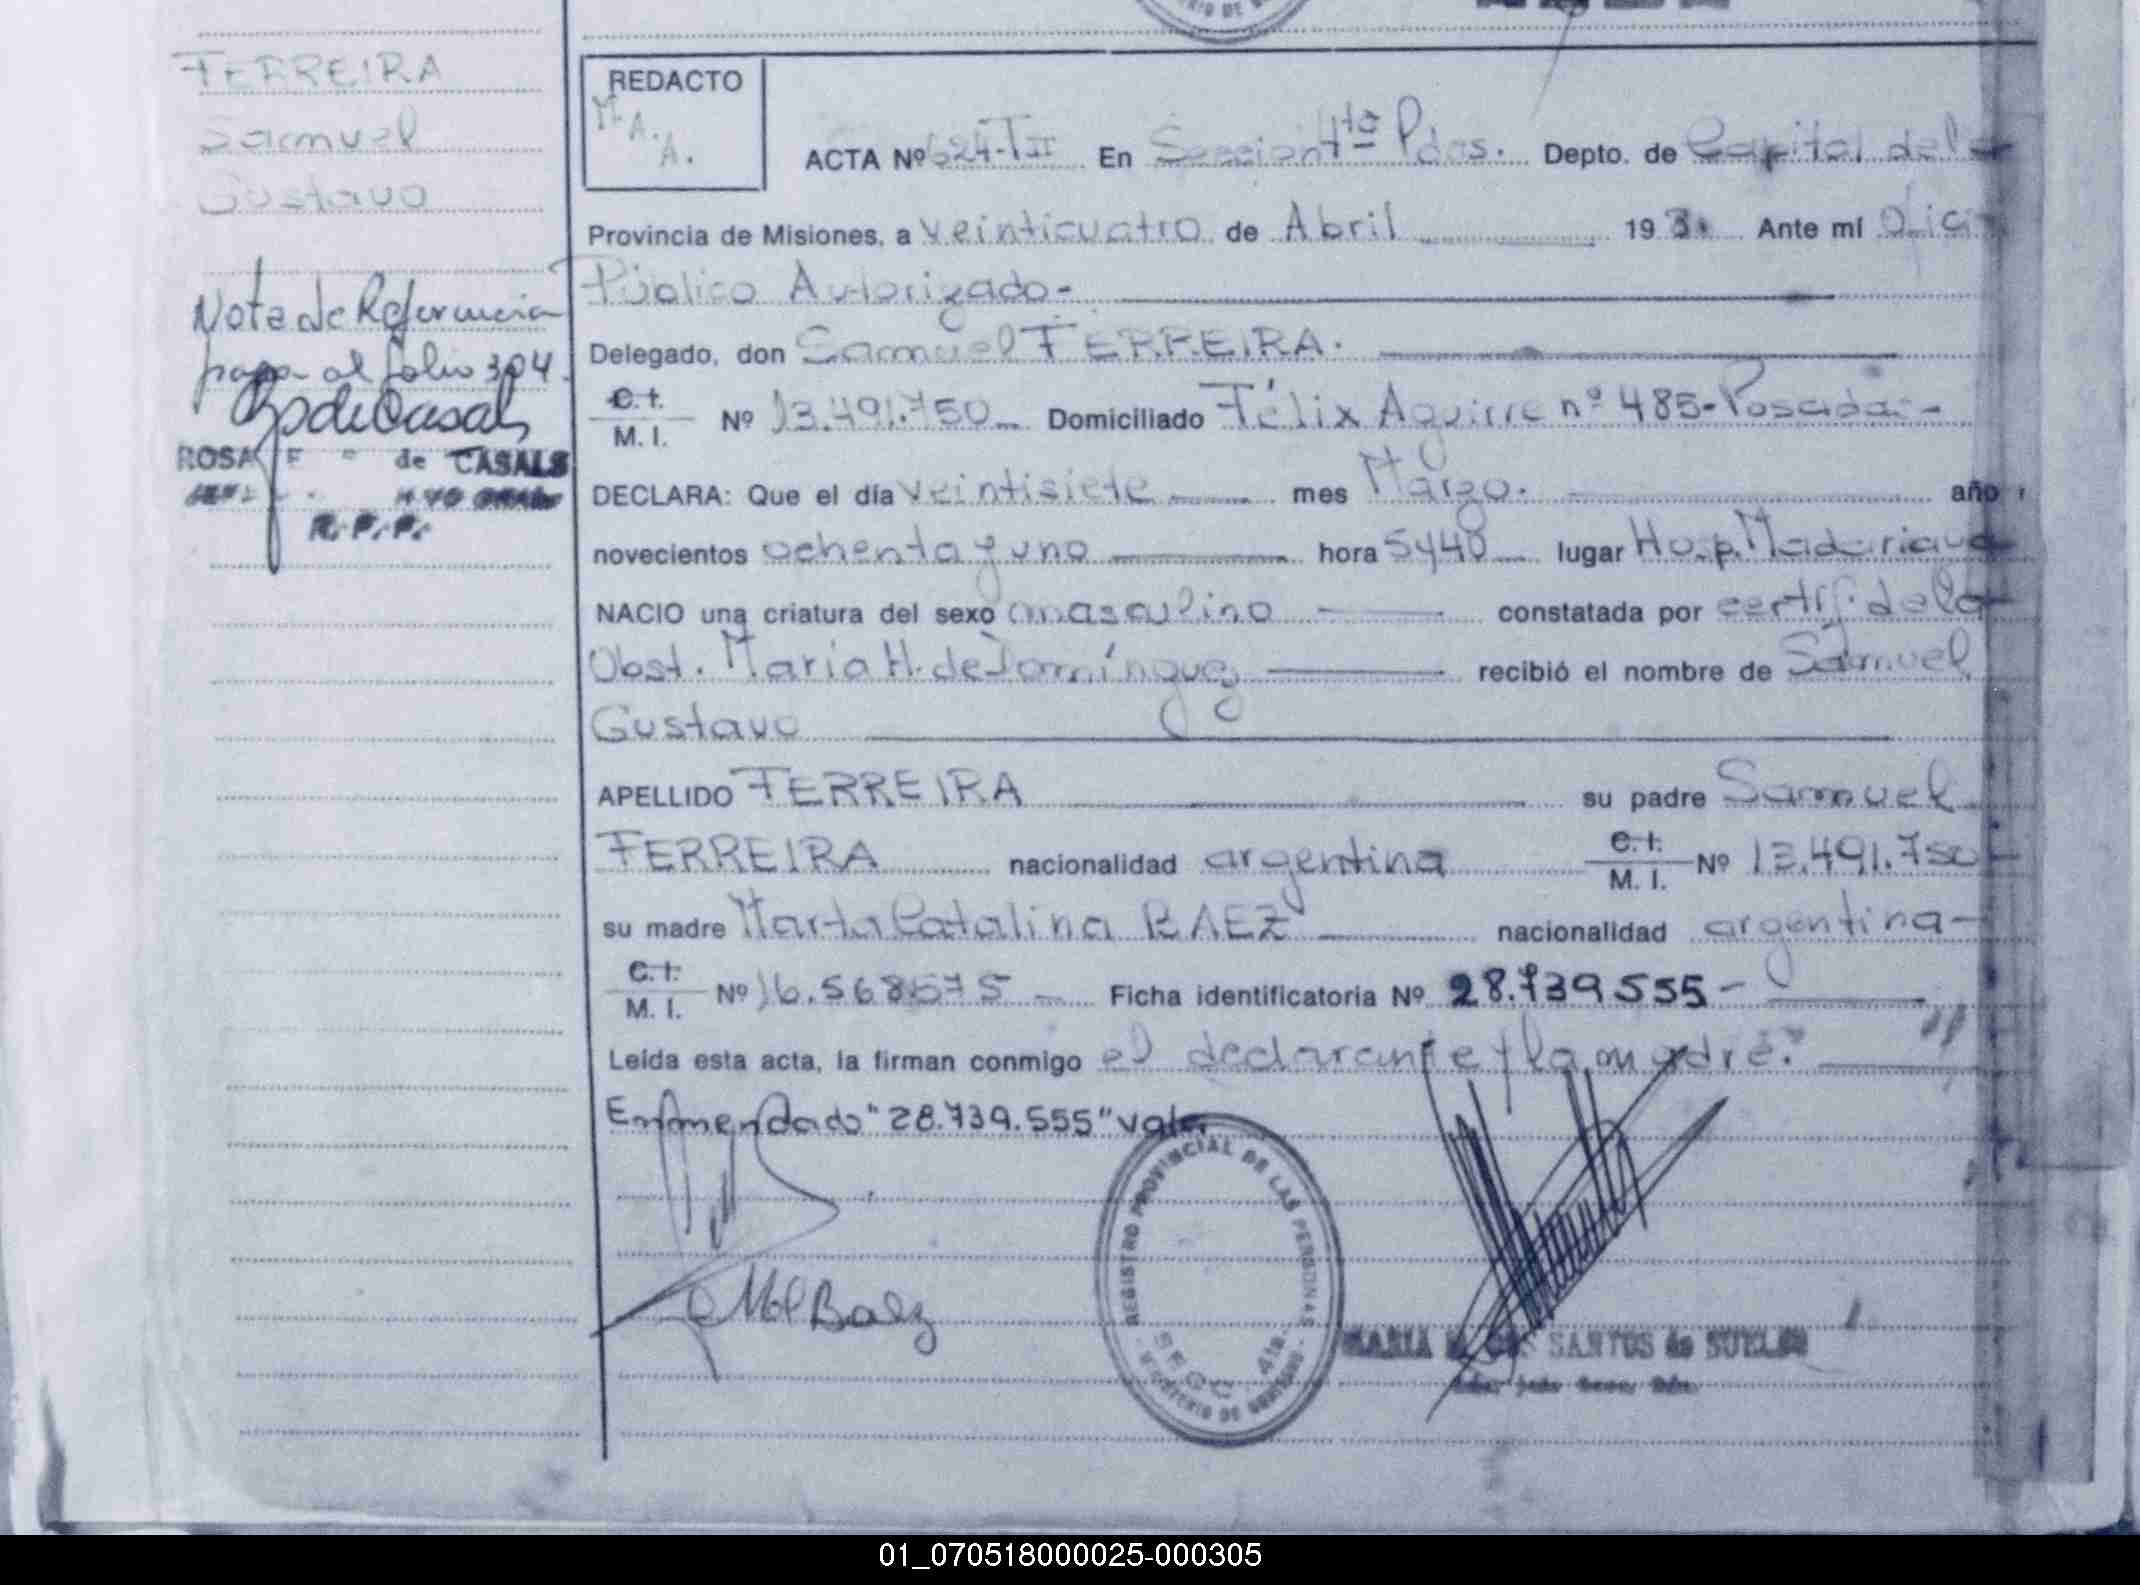 FERREIRA
Samuel
Gustavo
Nota de Referencia
pasa al folio 304.
ROSA de CASALS
R. P. P.
REDACTO
M.A.
A.
ACTA Nº 624-TII En Seccion 4ta Pdas. Depto. de Capital de la
Provincia de Misiones, a veinticuatro de Abril 198 Ante mí Ofici
Público Autorizado-
Delegado, don Samuel FERREIRA.
C.I.
M. I. Nº 13.491.750 Domiciliado Félix Aguirre nº 485-Posadas-
DECLARA: Que el día veintisiete mes Marzo. año
novecientos ochenta y uno hora 5y40 lugar Hosp. Madariaga
NACIO una criatura del sexo masculino constatada por certif. de la
Obst. Maria H. de Domínguez recibió el nombre de Samuel
Gustavo
APELLIDO FERREIRA su padre Samuel
FERREIRA nacionalidad argentina C.I. M. I. Nº 13.491.750
su madre Marta Catalina BAEZ nacionalidad argentina-
C.I.
M. I. Nº 16.568575 Ficha identificatoria Nº 28.739.555-
Leída esta acta, la firman conmigo el declarante y la madre."
Enmendado "28.739.555" vale
REGISTRO PROVINCIAL DE LAS PERSONAS
SECC. 4ta.
MINISTERIO DE GOBIERNO
Baez
MARIA SANTOS de
01_070518000025-000305